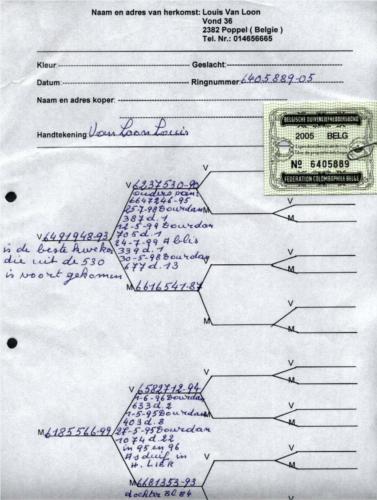 Naam en adres van herkomst: Louis Van Loon
Vond 36
2382 Poppel ( Belgie )
Tel. Nr.: 014656665
Kleur: Geslacht:
Datum: Ringnummer 6405889-05
Naam en adres koper:
Handtekening Van Loon Louis
BELGISCHE DUIVENLIEFHEBBERSBOND
2005 BELG
Nº 6405889
FEDERATION COLOMBOPHILE BELGE
V
V 6237530-90
ouders van:
6647246-95
25-7-98 Dourdan
M
387 d. 1
22-5-99 Dourdan
705 d. 1
24-7-99 Ablis
V 6491948-93
339 d. 1
is de beste kweker
30-5-98 Dourdan
die uit de 530
677 d. 13
V
is voort gekomen
M 6616541-87
V
M
M
V
M
V
V
V 6582712-94
M
1-6-96 Dourdan
633 d. 2
V
1-5-95 Dourdan
M
403 d. 8
M
M 6185566-99
27-5-95 Dourdan
1074 d. 22
in 95 en 96
V
Asduif in
V
H. LIER
M
M 6681353-93
dochter Bl. 84
V